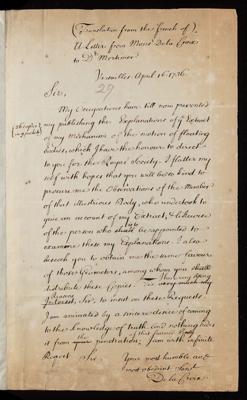 (Translation from the French of)
A Letter from Monsr. De la Croix
to Dr. Mortimer
Versailles April 16. 1736.
29
Sir,
My Occupations have till now prevented
my publishing the Explanations of ye Extract
of my Mechanism of the motion of floating
bodies, which I have the honour to direct
to you for the Royal Society. I flatter my
self with hopes that you will be so kind to
procure me the Observations of the Member
of that illustrious Body, who undertook to
give an account of my Extract, & likewise
of the person who shall be appointed to
examine these my Explanations. I also
beseech you to obtain me the same favour
of those Geometers, among whom you shall
distribute these Copies.
Sir, to insist on these Requests
I am animated by a sincere desire of coming
to the knowledge of truth, and nothing hides
it from penetration; I am with infinite
Respect &c.
Your most humble and
most obedient
De la Croix